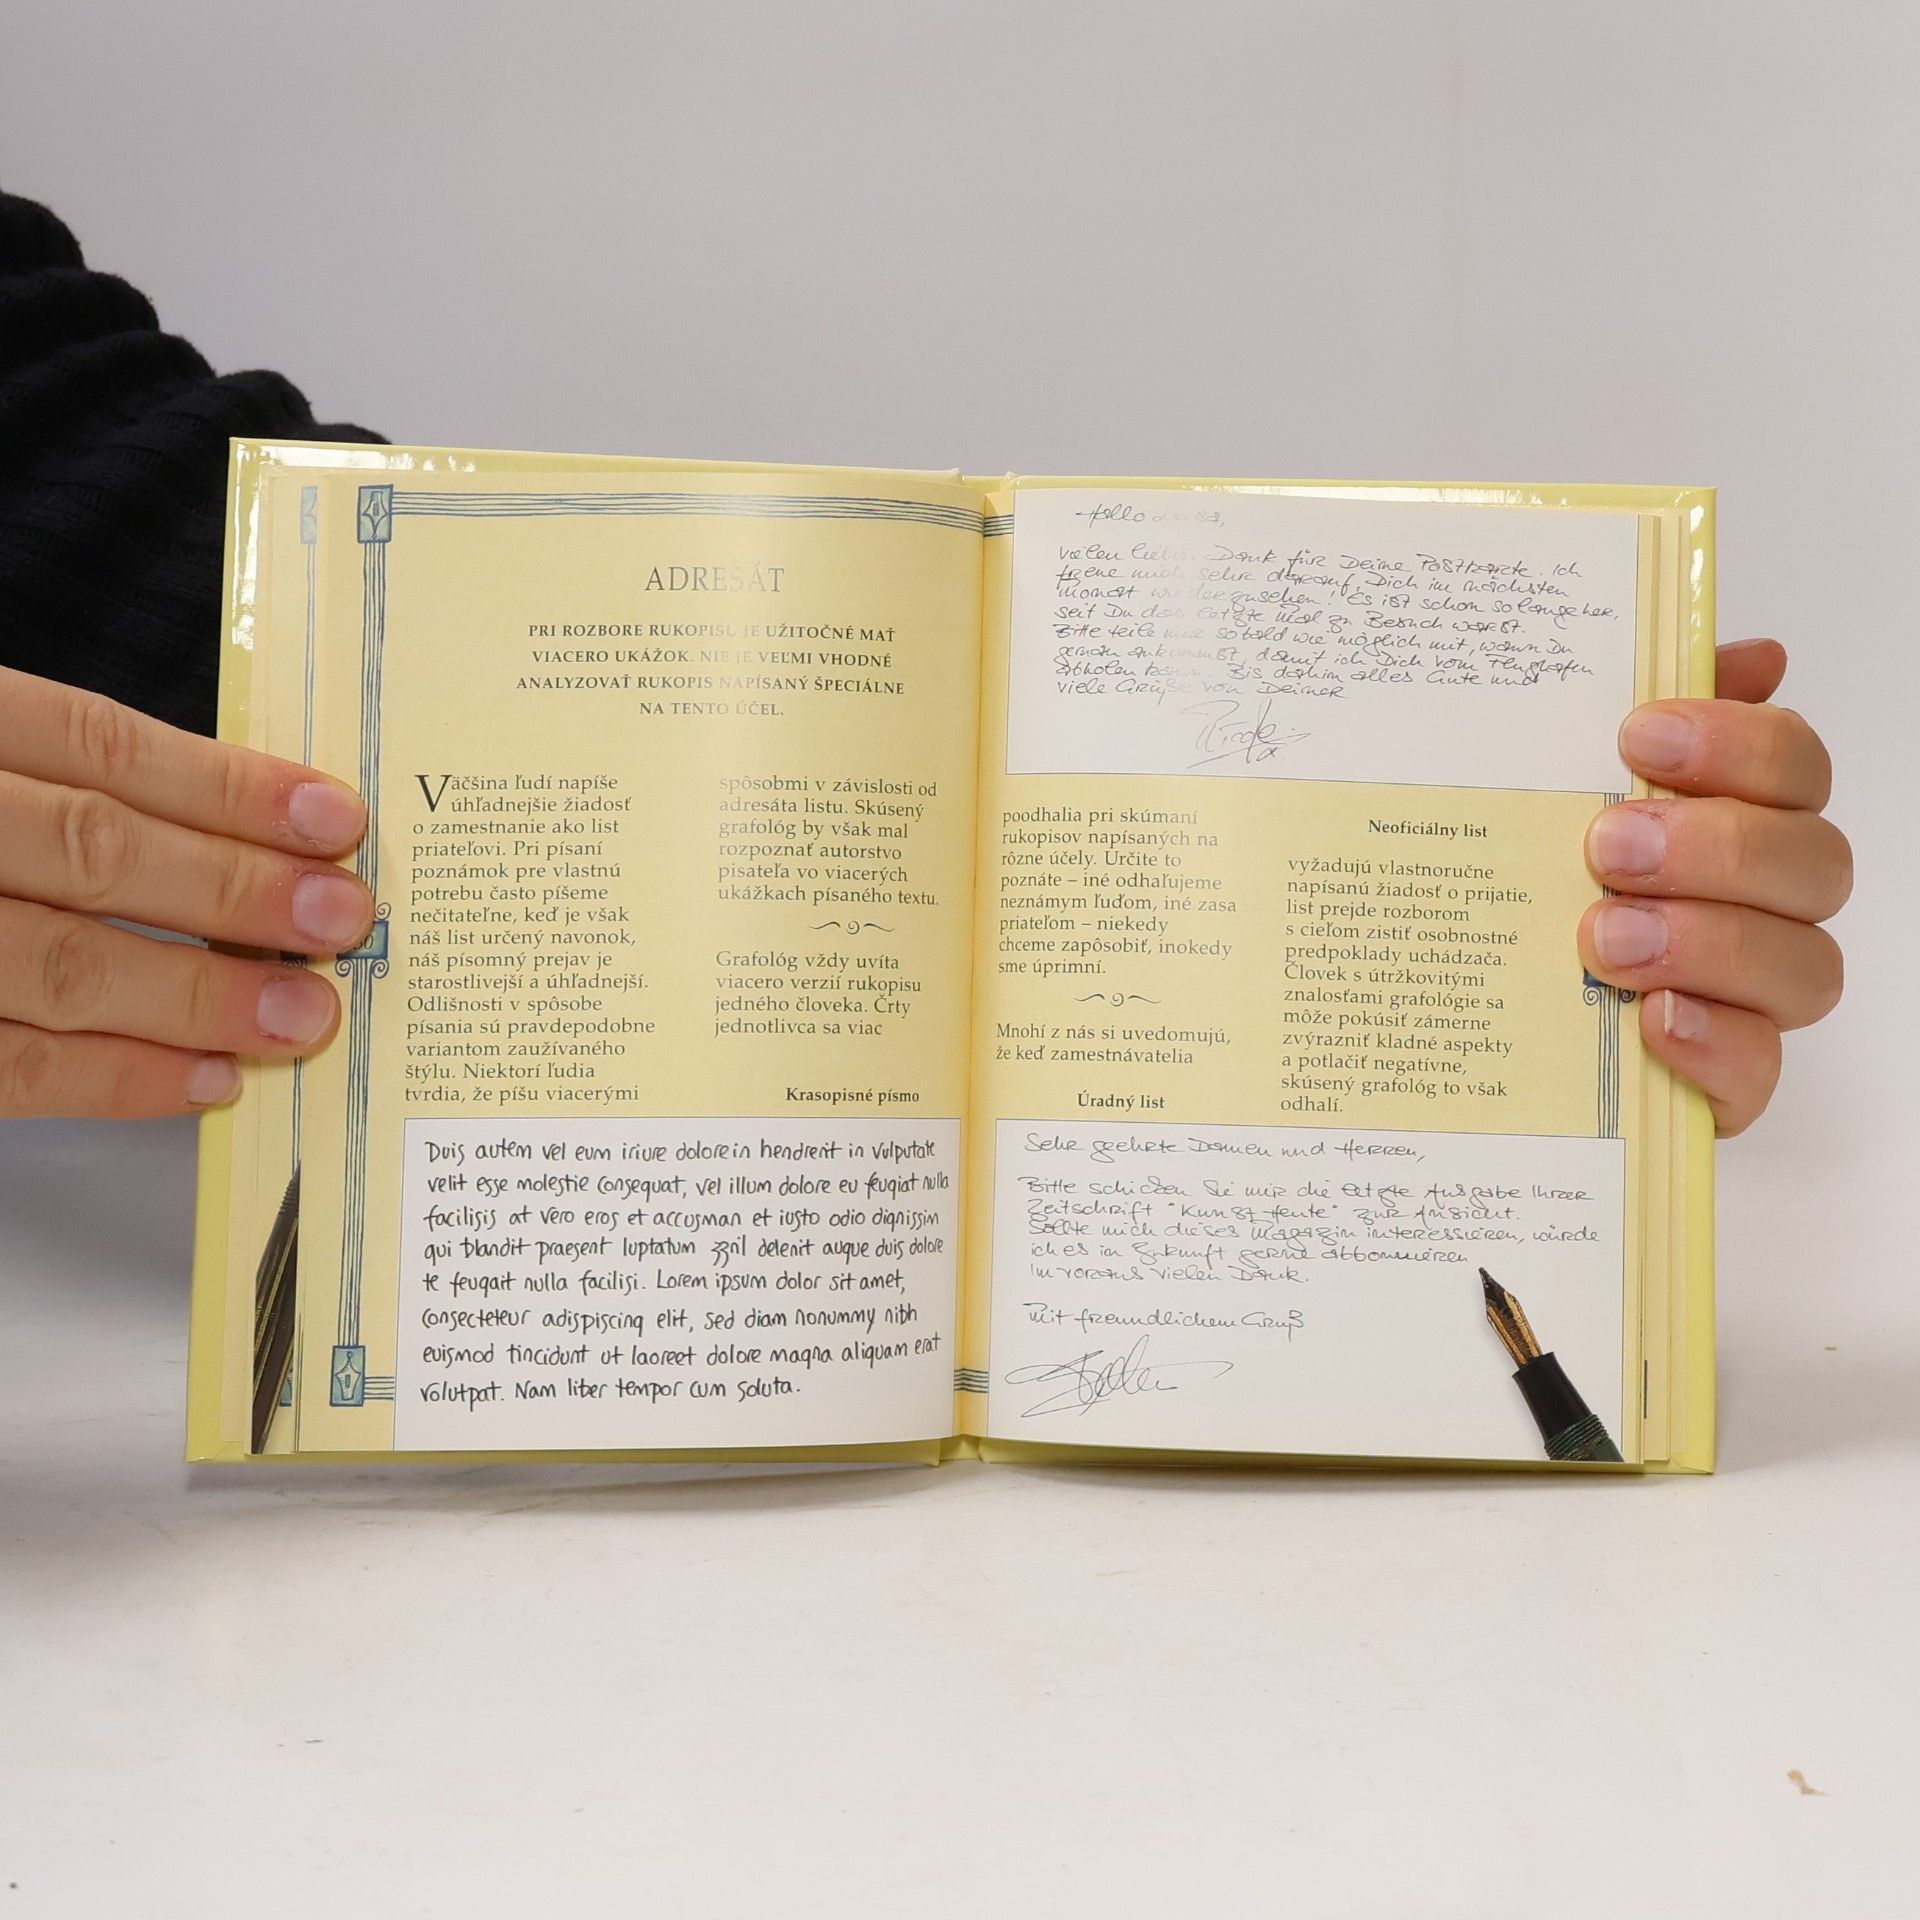 ADRESÁT
PRI ROZBORE RUKOPISU JE UŽITOČNÉ MAŤ
VIACERO UKÁŽOK. NIE JE VEĽMI VHODNÉ
ANALYZOVAŤ RUKOPIS NAPÍSANÝ ŠPECIÁLNE
NA TENTO ÚČEL.
Väčšina ľudí napíše
úhľadnejšie žiadosť
o zamestnanie ako list
priateľovi. Pri písaní
poznámok pre vlastnú
potrebu často píšeme
nečitateľne, keď je však
náš list určený navonok,
náš písomný prejav je
starostlivejší a úhľadnejší.
Odlišnosti v spôsobe
písania sú pravdepodobne
variantom zaužívaného
štýlu. Niektorí ľudia
tvrdia, že píšu viacerými
spôsobmi v závislosti od
adresáta listu. Skúsený
grafológ by však mal
rozpoznať autorstvo
pisateľa vo viacerých
ukážkach písaného textu.
Grafológ vždy uvíta
viacero verzií rukopisu
jedného človeka. Črty
jednotlivca sa viac
Krasopisné písmo
Duis autem vel eum iriure dolore in hendrerit in vulputate
velit esse molestie consequat, vel illum dolore eu feugiat nulla
facilisis at vero eros et accusman et iusto odio dignissim
qui blandit praesent luptatum zzril delenit augue duis dolore
te feugait nulla facilisi. Lorem ipsum dolor sit amet,
consecteteur adispiscing elit, sed diam nonummy nibh
euismod tincidunt ut laoreet dolore magna aliquam erat
volutpat. Nam liber tempor cum soluta.
Hallo
vielen lieben Dank für Deine Postkarte. Ich
freue mich sehr darauf, Dich im nächsten
Monat wiederzusehen! Es ist schon so lange her,
seit Du das letzte Mal zu Besuch warst.
Bitte teile mir sobald wie möglich mit, wann Du
genau ankommst, damit ich Dich vom Flughafen
abholen kann. Bis dahin alles Gute und
viele Grüße von Deiner
poodhalia pri skúmaní
rukopisov napísaných na
rôzne účely. Určite to
poznáte – iné odhaľujeme
neznámym ľuďom, iné zasa
priateľom – niekedy
chceme zapôsobiť, inokedy
sme úprimní.
Mnohí z nás si uvedomujú,
že keď zamestnávatelia
Úradný list
Neoficiálny list
vyžadujú vlastnoručne
napísanú žiadosť o prijatie,
list prejde rozborom
s cieľom zistiť osobnostné
predpoklady uchádzača.
Človek s útržkovitými
znalosťami grafológie sa
môže pokúsiť zámerne
zvýrazniť kladné aspekty
a potlačiť negatívne,
skúsený grafológ to však
odhalí.
Sehr geehrte Damen und Herren,
Bitte schicken Sie mir die letzte Ausgabe Ihrer
Zeitschrift "Kunst Heute" zur Ansicht.
Sollte mich dieses Magazin interessieren, würde
ich es in Zukunft gerne abbonnieren
Im voraus vielen Dank.
Mit freundlichem Gruß